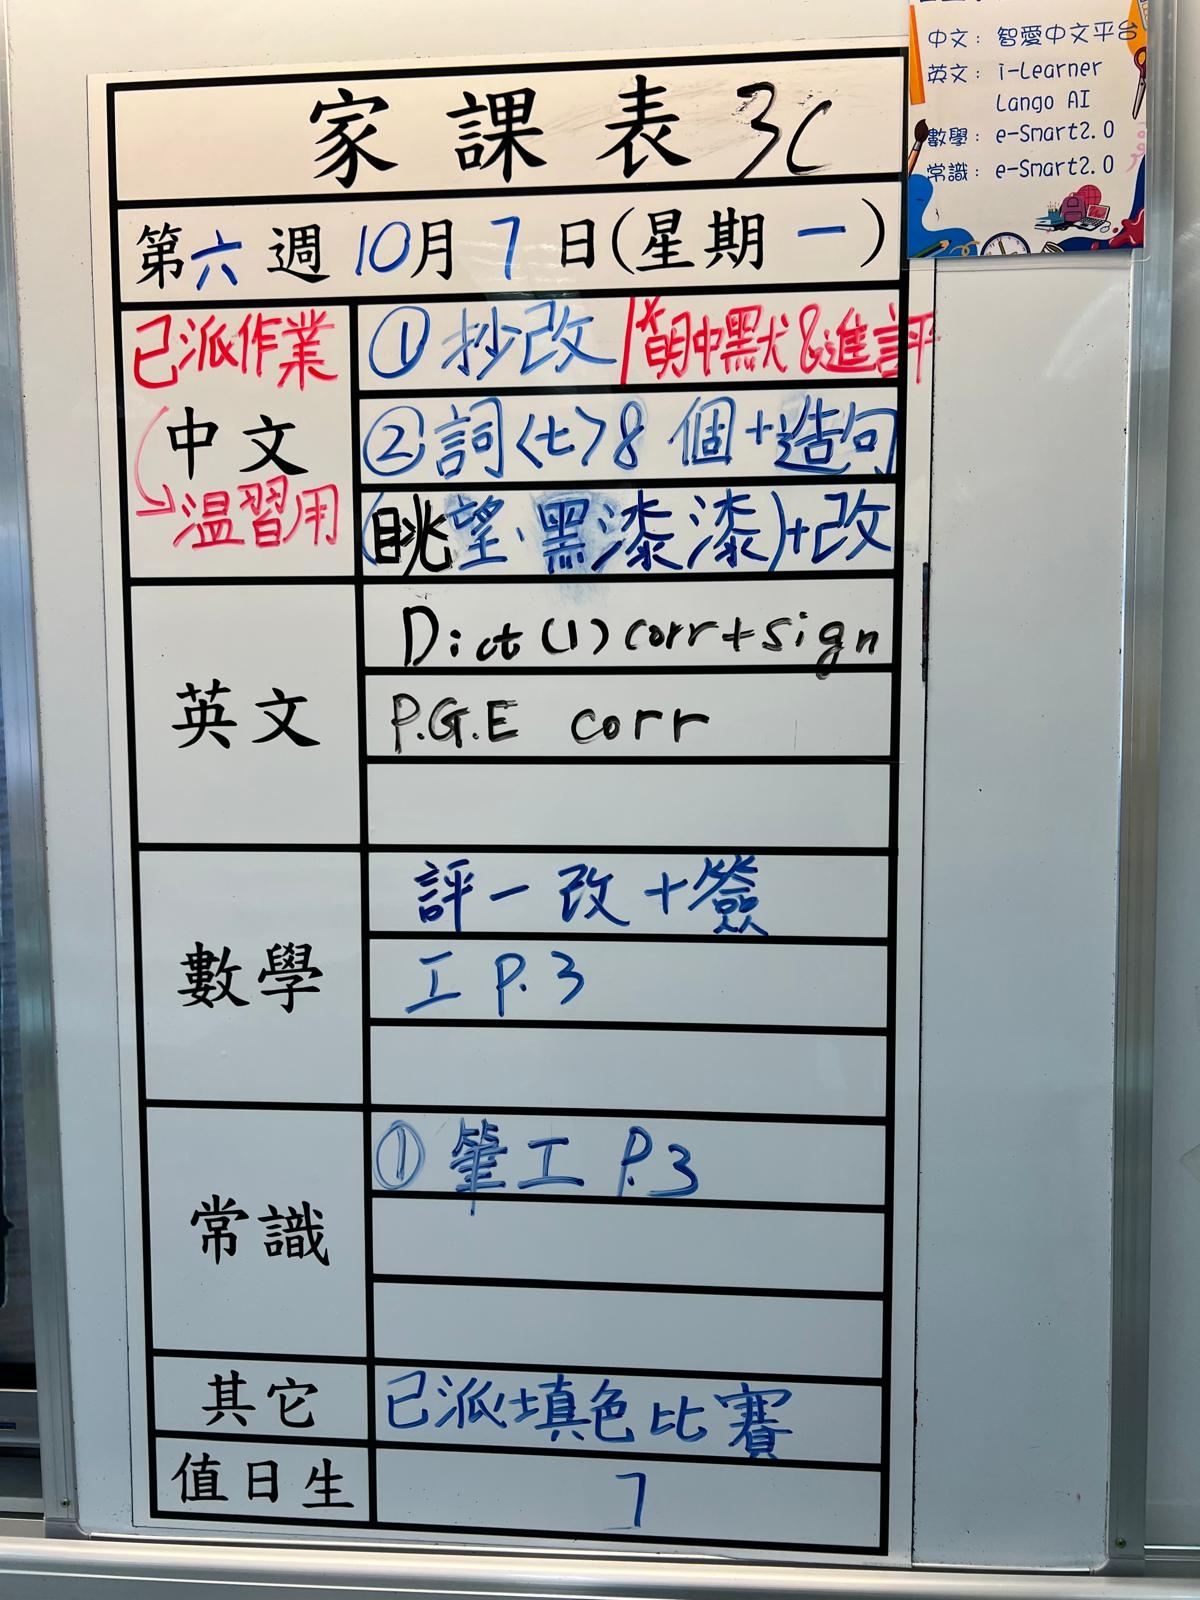 家課表 3C
第六週 10月7日(星期一)
已派作業
中文
温習用
① 抄改
中默&進評
② 詞〈七〉8個+造句
(眺望、黑漆漆)+改
英文
Dict (1) corr + sign
P.G.E corr
數學
評一改+簽
工 P.3
常識
① 筆工 P.3
其它
已派填色比賽
值日生
7
中文: 智愛中文平台
英文: i-Learner
Lango AI
數學: e-Smart2.0
常識: e-Smart2.0